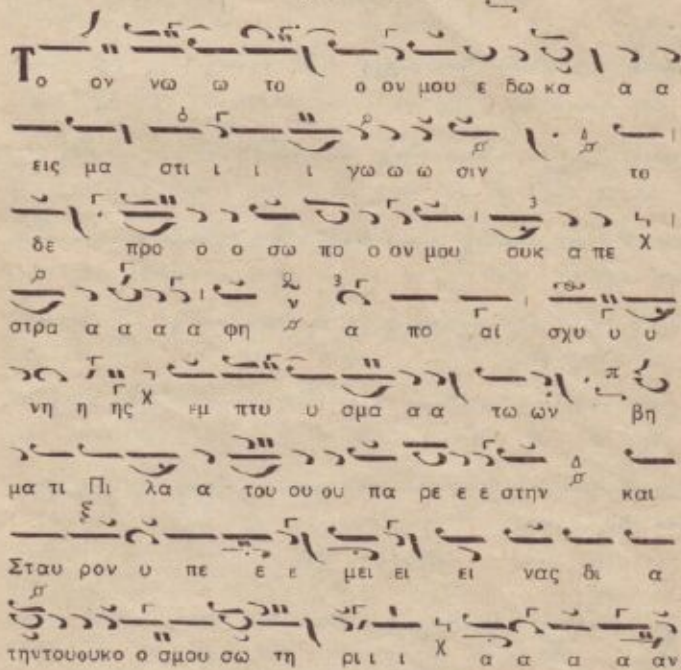 Το ον νω ω το ο ον μου ε δω κα α α
εις μα στι ι ι ι γω ω ω σιν το
δε προ ο ο σω πο ο ον μου ουκ α πε
στρα α α α α φη α πο αί σχυ υ υ
νη η ης εμ πτυ υ σμα α α τω ων βη
μα τι Πι λα α του ου ου πα ρε ε ε στην και
Σταυ ρον υ πε ε ε μει ει ει νας δι α
την του ου κο ο σμου σω τη ρι ι ι α α α α αν